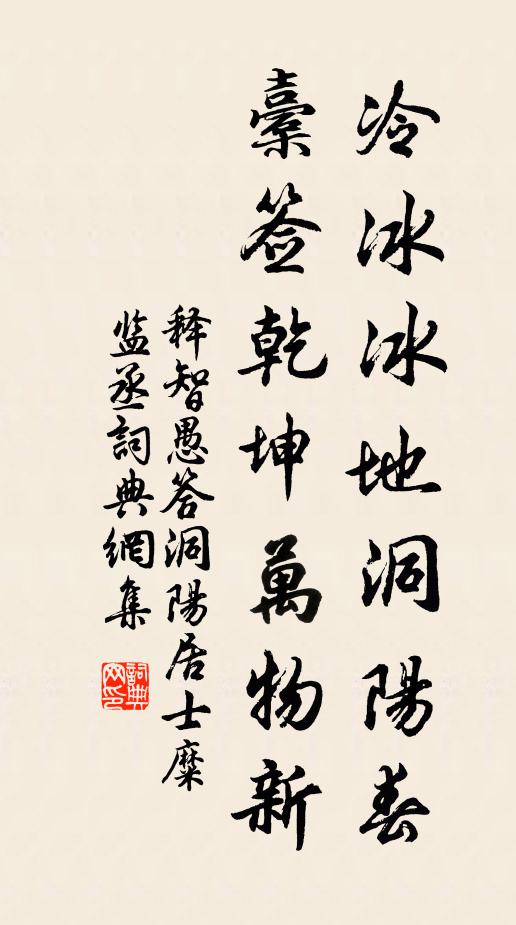 冷冰冰地洞陽春
橐签乾坤萬物新
释智愚答洞陽居士糜
监丞詞典網集
詞典
网印